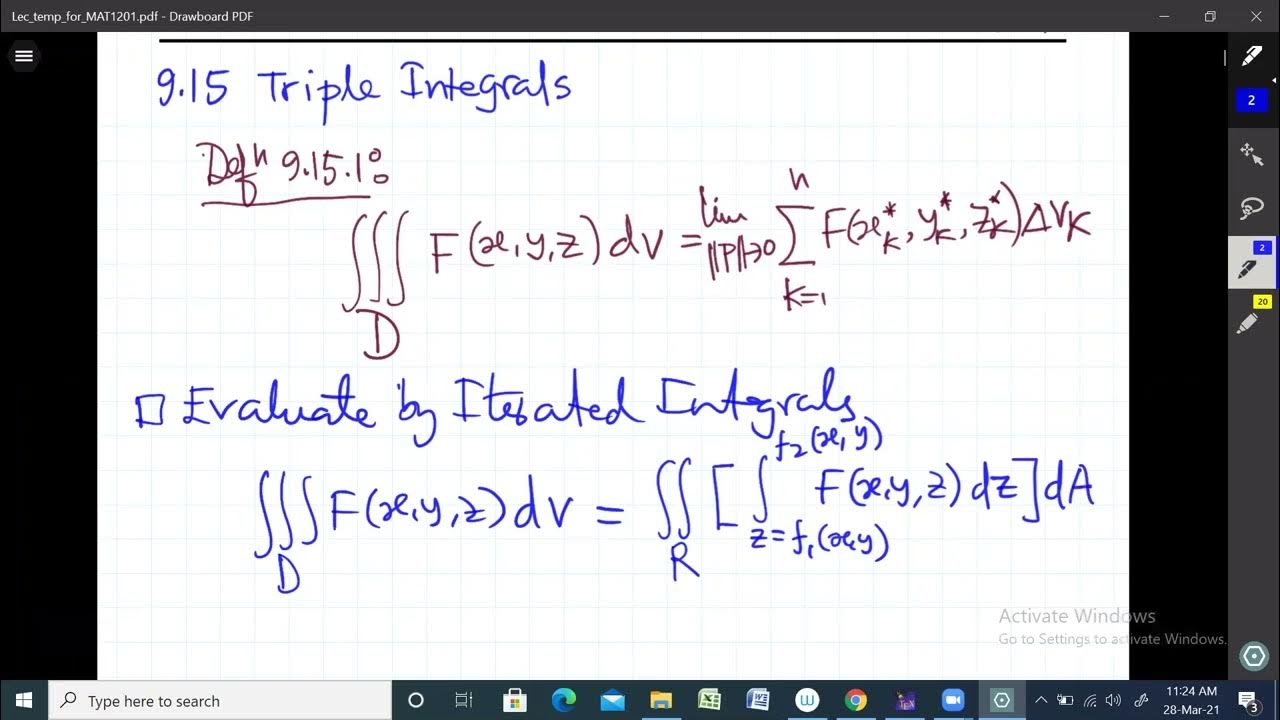 Lec_temp_for_MAT1201.pdf - Drawboard PDF
9.15 Triple Integrals
Defn 9.15.1:
∭_D F(x,y,z) dV = lim_{||P||→0} ∑_{k=1}^{n} F(x_k^*, y_k^*, z_k^*) ΔV_k
□ Evaluate by Iterated Integrals
∭_D F(x,y,z) dV = ∬_R [∫_{z=f_1(x,y)}^{f_2(x,y)} F(x,y,z) dz] dA
2
2
20
Activate Windows
Go to Settings to activate Windows.
Type here to search
11:24 AM
28-Mar-21
3